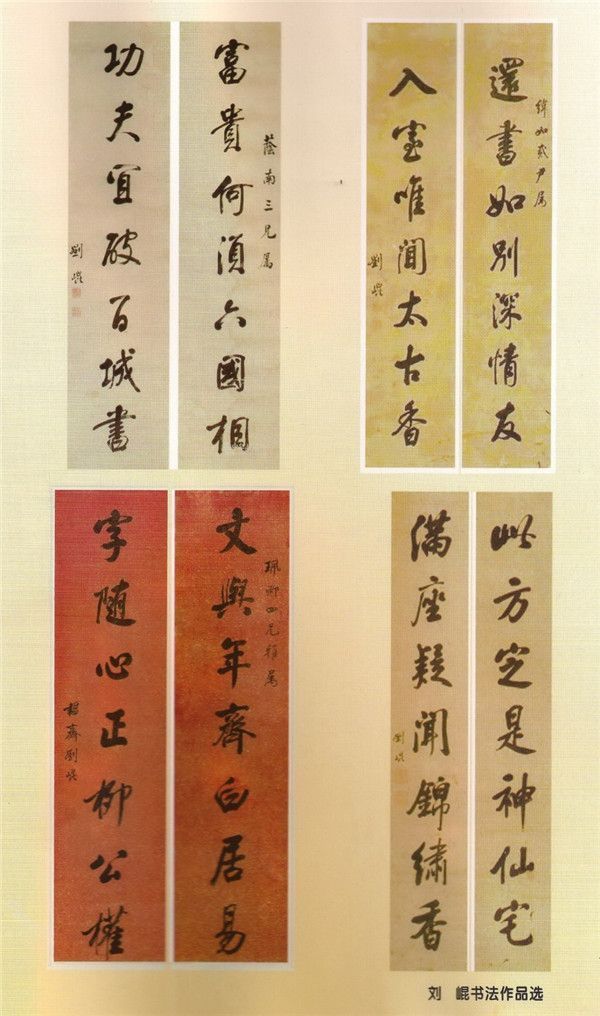 蔭南三兄属
富貴何湏六國相
功夫宜破百城書
劉崐
緯如貳尹属
還書如別深情友
入室唯聞太古香
劉崐
珮卿四兄雅属
文與年齊白居易
字随心正柳公權
韞齋劉崐
此方定是神仙宅
滿座疑聞錦繡香
劉崐
刘 崐书法作品选